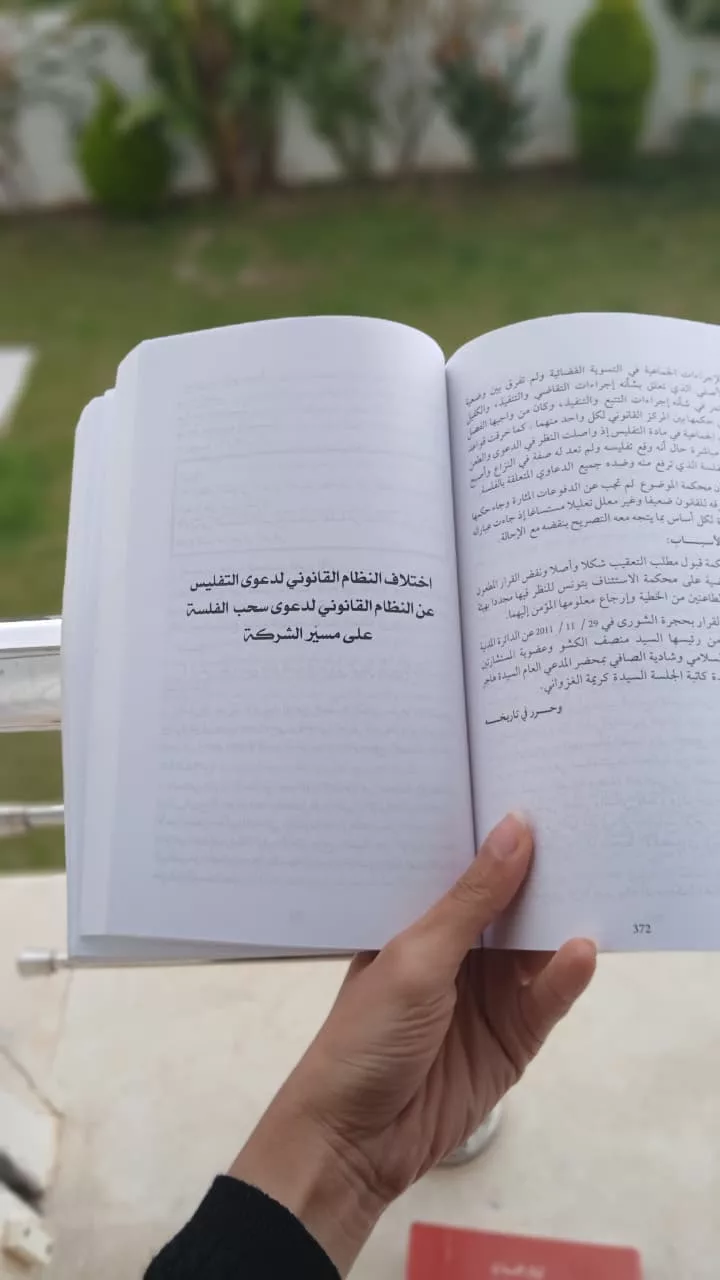 الإجراءات الجماعية في التسوية القضائية ولم تفرق بين وضعية
الذي تعلق بشأنه إجراءات التقاضي والتنفيذ، والكفيل
في شأنه إجراءات التتبع والتنفيذ، وكان من واجبها الفصل
حكمها بين المركز القانوني لكل واحد منهما، كما خرقت قواعد
الجماعية في مادة التفليس إذ واصلت النظر في الدعوى والطعن
مباشرة حال أنه وقع تفليسه ولم تعد له صفة في النزاع وأصبح
الفلسة الذي ترفع منه وضده جميع الدعاوي المتعلقة بالفلسة
محكمة الموضوع لم تجب عن الدفوعات المثارة وجاء حكمها
للقانون ضعيفا وغير معلل تعليلا مستساغا إذ جاءت عباراته
لكل أساس بما يتجه معه التصريح بنقضه مع الإحالة.
الأسباب:
قبول مطلب التعقيب شكلا وأصلا ونقض القرار المطعون
على محكمة الاستئناف بتونس للنظر فيها مجددا بهيئة
الطاعنين من الخطية وإرجاع معلومها المؤمن إليهما.
القرار بحجرة الشورى في 29 / 11 / 2011 عن الدائرة المدنية
رئيسها السيد منصف الكشو وعضوية المستشارتين
وشادية الصافي بمحضر المدعي العام السيدة هاجر
كاتبة الجلسة السيدة كريمة الغزواني.
وحرر في تاريخه
372
اختلاف النظام القانوني لدعوى التفليس
عن النظام القانوني لدعوى سحب الفلسة
على مسيّر الشركة